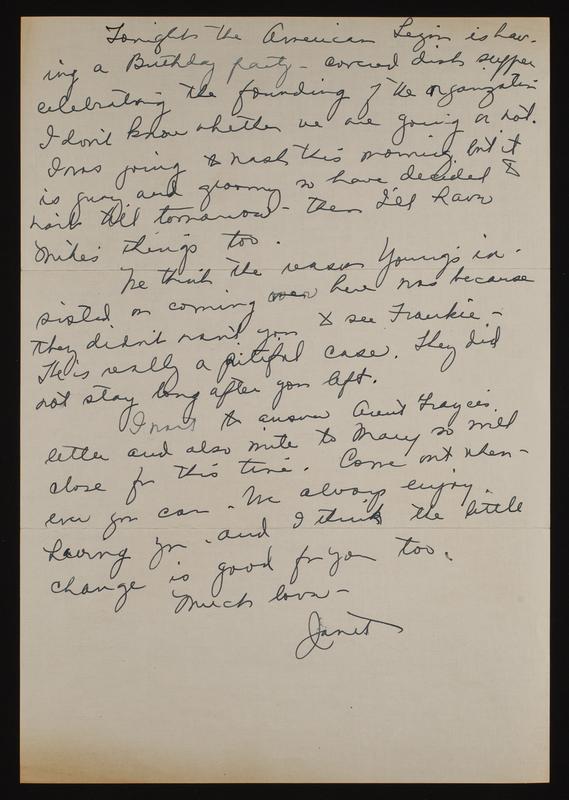 Tonight the American Legion is hav-
ing a Birthday party - covered dish supper
celebrating the founding of the organization
I don't know whether we are going or not.
I was going to wash this morning, but it
is gray and gloomy so have decided to
wait till tomorrow - then I'll have
Mike's things too.
We think the reason Youngs in-
sisted on coming over here was because
they didn't want you to see Frankie -
He is really a pitiful case. They did
not stay long after you left.
I want to answer Aunt Frayces
letter and also write to Mary so will
close for this time. Come out when-
ever you can. We always enjoy
having you and I think the little
change is good for you too.
Much love -
Janet